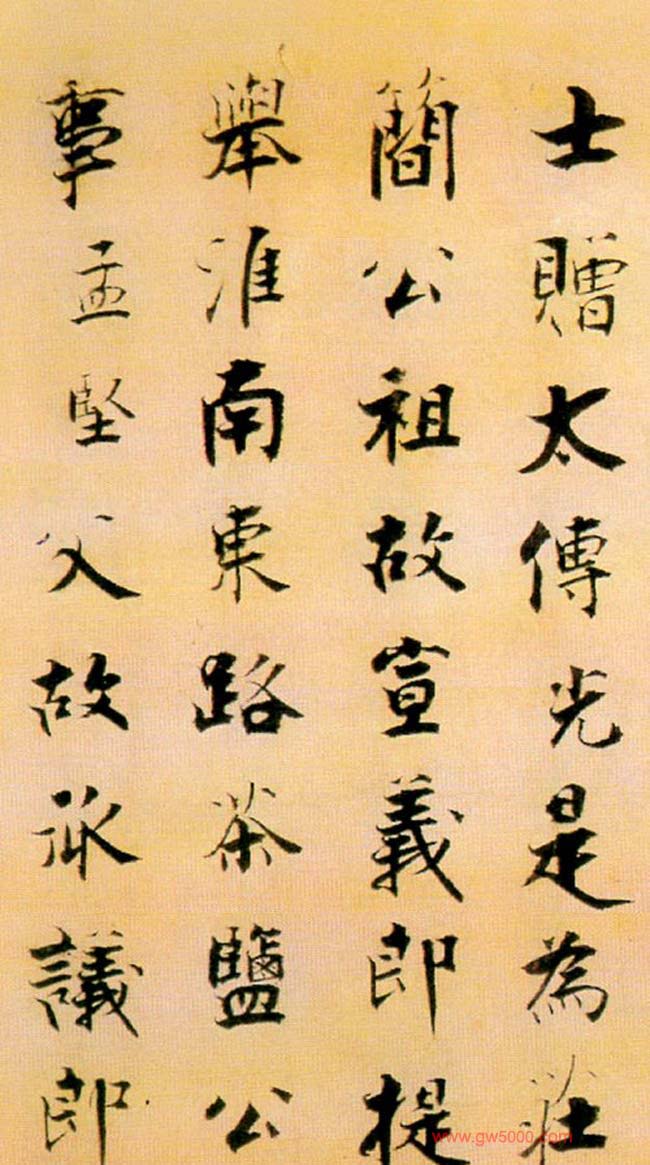 士贈太傅光是為莊
簡公祖故宣義郎提
舉淮南東路茶鹽公
事孟堅父故承議郎
www.gw5000.com